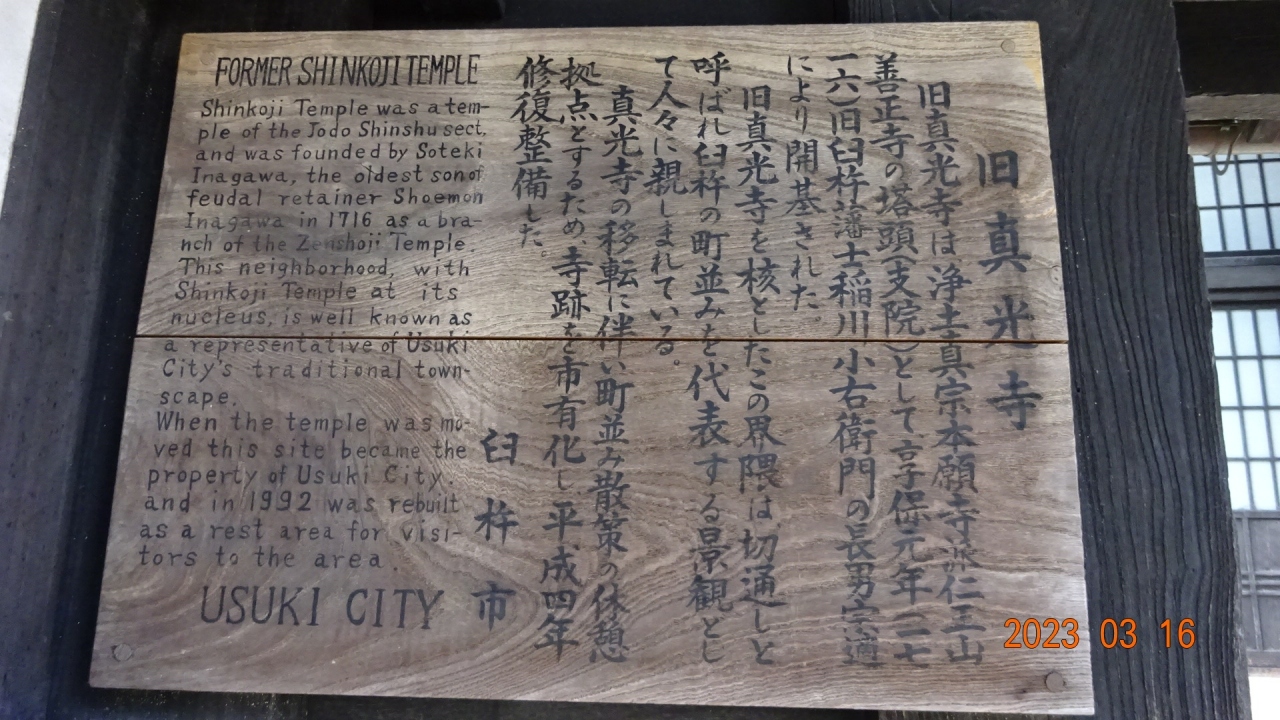 旧真光寺
旧真光寺は浄土真宗本願寺派仁王山
善正寺の塔頭(支院)として享保元年(一七
一六)旧臼杵藩士稲川小右衛門の長男宗適
により開基された。
旧真光寺を核としたこの界隈は、切通しと
呼ばれ臼杵の町並みを代表する景観とし
て人々に親しまれている。
真光寺の移転に伴い町並み散策の休憩
拠点とするため、寺跡を市有化し平成四年
修復整備した。
臼杵市
FORMER SHINKOJI TEMPLE
Shinkoji Temple was a tem-
ple of the Jodo Shinshu sect,
and was founded by Soteki
Inagawa, the oldest son of
feudal retainer Shoemon
Inagawa in 1716 as a bra-
nch of the Zenshoji Temple.
This neighborhood, with
Shinkoji Temple at its
nucleus, is well known as
a representative of Usuki
City's traditional town-
scape.
When the temple was mo-
ved this site became the
property of Usuki City.
and in 1992 was rebuilt
as a rest area for visi-
tors to the area
USUKI CITY
2023 03 16